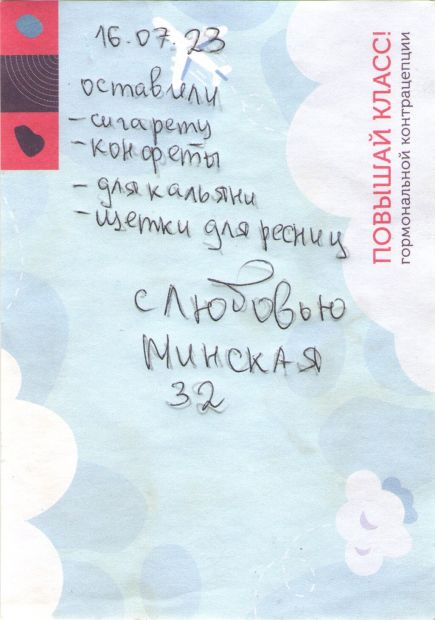 16.07.23
оставили
- сигарету
- конфеты
- для кальяни
- щетки для ресниц
с Любовью
Минская
32
ПОВЫШАЙ КЛАСС!
гормональной контрацепции